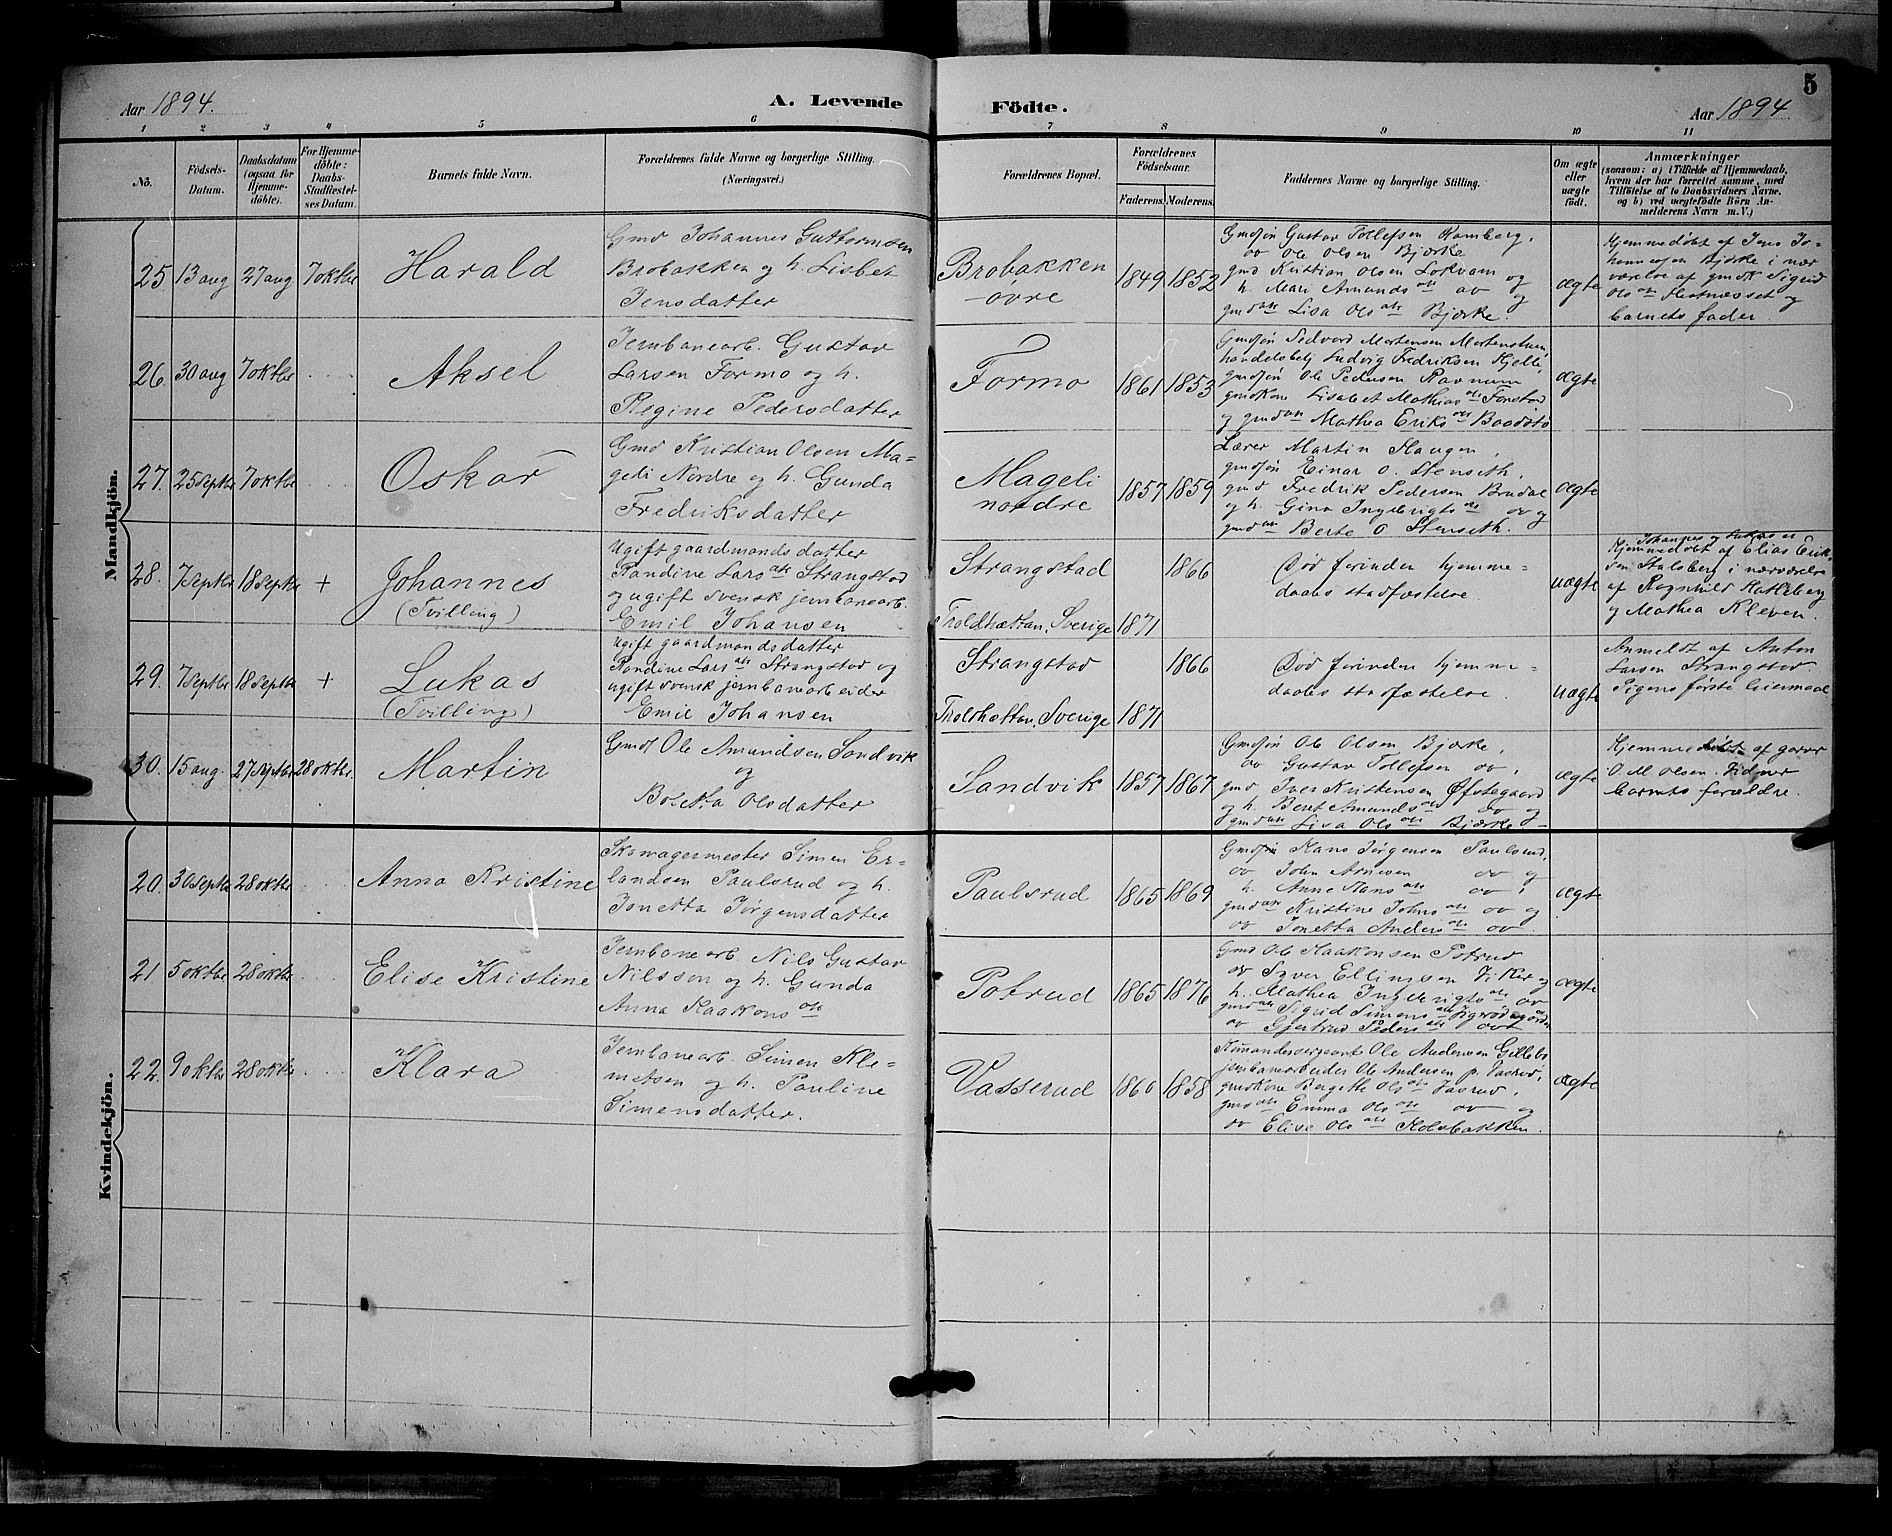 5
Aar 1894.
A. Levende
Födte.
Aar 1894
1 2 3 4 5 6 7 8 9 10 11
No.
Födsels-
Datum.
Daabsdatum
(ogsaa for
Hjemme-
döbte).
For Hjemme-
döbte:
Daabs-
Stadfæstel-
ses Datum.
Barnets fulde Navn.
Forældrenes fulde Navne og borgerlige Stilling.
(Næringsvei.)
Forældrenes Bopæl.
Forældrenes
Fødselsaar.
Faderens. Moderens.
Faddernes Navne og borgerlige Stilling.
Om ægte
eller
uægte
født.
Anmærkninger
(saasom: a) i Tilfælde af Hjemmedaab,
hvem der har forrettet samme, med
Tilföielse af to Daabsvidners Navne,
og b) ved uægtefödte Börn An-
melderens Navn m.V.)
Mandkjön.
25 13 aug 27 aug 7 oktbr
Harald
Gmd Johannes Guttormsen
Brobakken og h. Lisbet
Jensdatter
Brobakken
øvre
1849 1852
Gmdsøn Gustav Tollefsen Homberg,
do Ole Olsen Bjørke
gmd Kristian Olsen Lokvam og
h. Mari Amunds dtr do og
gmddtr Lisa Ols dtr Bjørke.
ægte
Hjemmedøbt af Jens Jo-
hannesen Bjørke i nær
værelse af gmdk Sigrid
Ols dtr og
barnets fader.
26. 30 aug 7 oktbr
Aksel
Jernbanearb. Gustav
Larsen Formo og h.
Regine Pedersdatter
Formo
1861 1853
Gmdsøn Sedvard Mortensen Mortenstuen,
handelsbetj Ludvig Fredriksen Kjelle,
gmdsøn Ole Pedersen Ravnum
gmdkone Lisabet Mathias dtr Fonstad
og gmddtr Mathea Eriks dtr
ægte
27. 25 septbr 7 oktbr
Oskar
Gmd Kristian Olsen Ma-
geli Nordre og h. Gunda
Fredriksdatter
Mageli
nordre
1857 1859
Lærer Martin Haugen,
gmdsøn Einar O. Stenseth,
gmd Fredrik Pedersen Brudal
og h. Gina Ingebrigts dtr do og
gmddtr Berte O Stenseth.
ægte
28. 7 septbr 18 septbr +
Johannes
(Tvilling)
Ugift gaardmandsdatter
Randine Lars dtr Strangstad
og ugift svensk jernbanearb.
Emil Johansen
Strangstad 1866
Troldhættan, Sverige 1871
Død forinden hjemme-
daabs stadfæstelse.
uægte
Johannes og Lukas er
Hjemmedøbt af Elias Erik-
sen Stalsberg i nærværelse
af Ragnhild Hatleberg
og Mathea Kleven.
29. 7 septbr 18 septbr +
Lukas
(Tvilling)
Ugift gaardmandsdatter
Randine Lars dtr Strangstad og
ugift svensk jernbanearbeider
Emil Johansen
Strangstad 1866
Troldhættan, Sverige 1871
Død forinden hjemme-
daabs stadfæstelse.
uægte
Anmeldt af Anton
Larsen Strangstad.
Pigens første leiermaal
30. 15 aug. 27 septbr 28 oktbr.
Martin
Gmd Ole Amundsen Sandvik
og
Boletta Olsdatter
Sandvik
1857 1867
Gmdsøn Ole Olsen Bjørke,
do Gustav Tollefsen do,
gmd Iver Kristensen Øfstegaard
og h. Berit Amunds dtr do og
gmddtr Lisa Ols dtr Bjørke -
ægte
Hjemmedøbt af garver
O. M. Olsen. Vidner
barnets forældre.
Kvindekjön.
20. 30 septbr 28 oktbr
Anna Kristine
Skomagermester Simen Er-
landsen Paulsrud og h.
Jonetta Jørgensdatter
Paulsrud
1865 1869
Gmdsøn Hans Jørgensen Paulsrud,
do John Arnesen do og
h. Anne Hans dtr do,
gmddtr Kristine Johns dtr do og
do Jonetta Anders dtr do.
ægte
21. 5 oktbr 28 oktbr
Elise Kristine
Jernbanearb. Nils Gustav
Nilsson og h. Gunda
Anna Haakons dtr
Potrud
1865 1876
Gmd Ole Haakonsen Potrud
do Syver Ellingsen Viker og
h. Mathea Ingebrigts dtr do
gmddtr Sigrid Simens dtr
do Gjertrud Peders dtr
ægte
22. 9 oktbr 28 oktbr
Klara
Jernbanearb. Simen Kle-
metsen og h. Pauline
Simensdatter.
Vasserud
1860 1858
Kommandersergeant Ole Andersen Gillebo
jernbanearbeider Ole Andersen p. Vasrud,
gmdkone Bergithe Ols dtr Vasrud,
gmddtr Emma Ols dtr do og
do Elise Ols dtr Holsbakken.
ægte